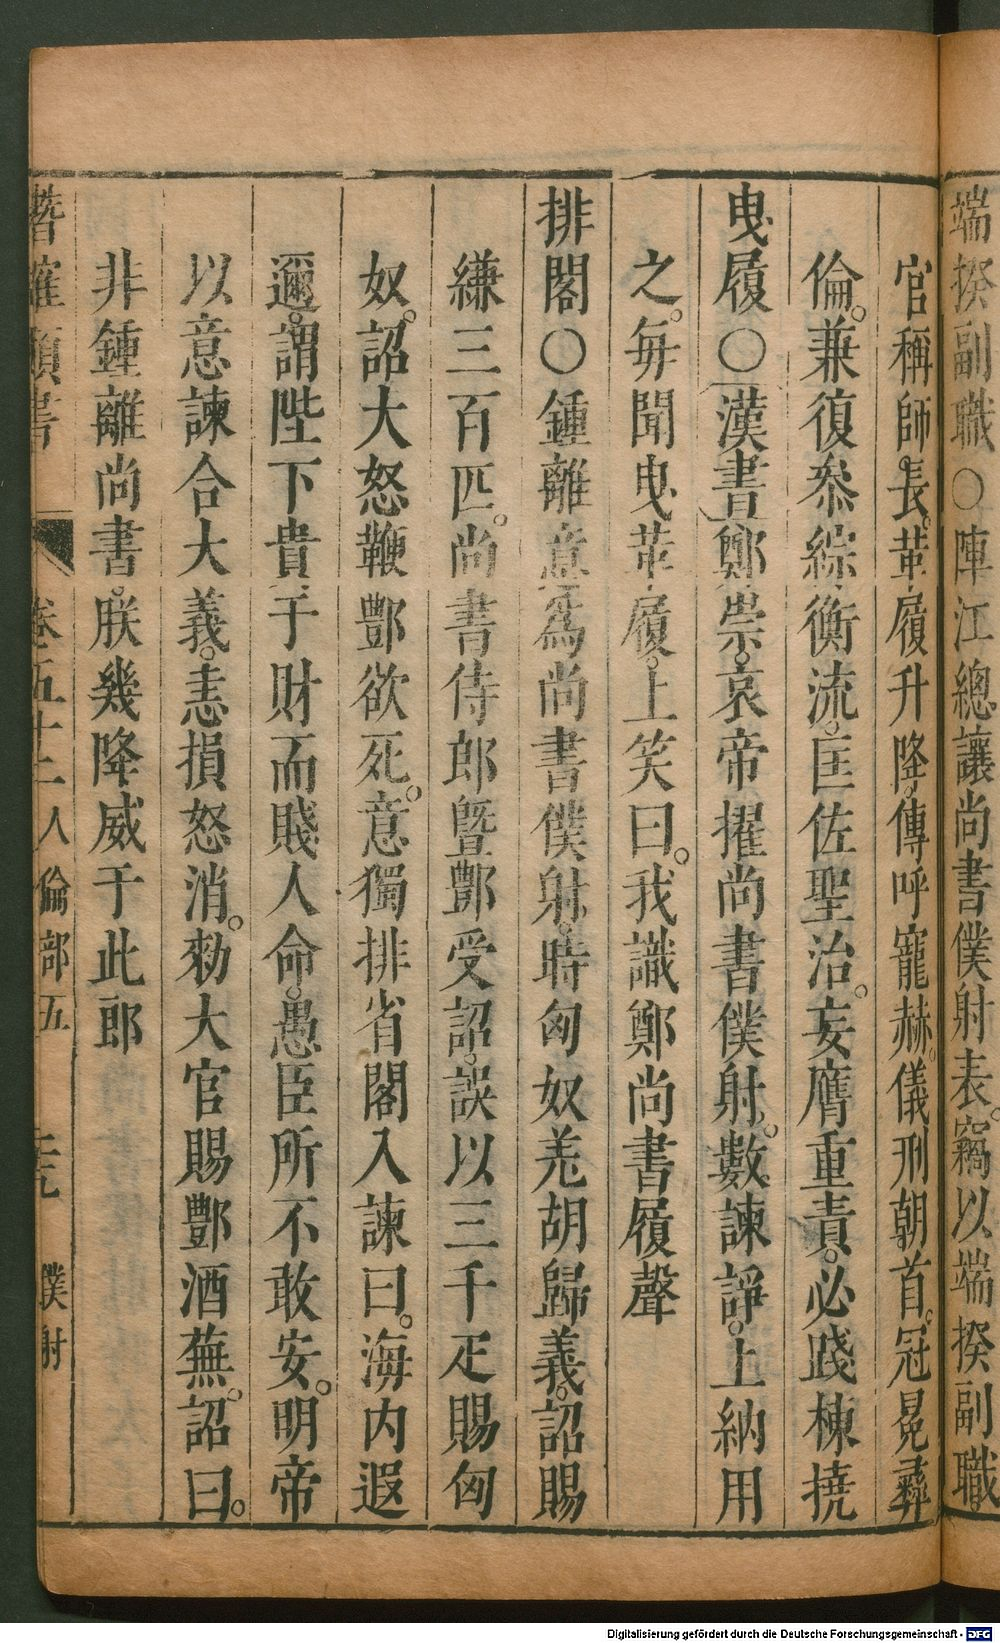 端揆副職○陳江總讓尚書僕射表。竊以端揆副職。
官稱師長。革履升降。傳呼寵赫。儀刑朝首。冠冕彝
倫。兼復叅綜衡流。匡佐聖治。妄膺重責。必踐棟撓
曳履○漢書鄭崇。哀帝擢尚書僕射。數諫諍。上納用
之。毎聞曳革履。上笑曰。我識鄭尚書履聲
排閣○鍾離意爲尚書僕射。時匈奴羌胡歸義。詔賜
縑三百匹。尚書侍郎曁酆受詔。誤以三千疋賜匈
奴。詔大怒鞭酆欲死。意獨排省閣入諫曰。海内遐
邇。謂陛下貴于財而賤人命。愚臣所不敢安。明帝
以意諫合大義。恚損怒消。勑大官賜酆酒蕪。詔曰。
非鍾離尚書。朕幾降威于此郎
卷五十二人倫部五 僕射
Digitalisierung gefördert durch die Deutsche Forschungsgemeinschaft - DFG